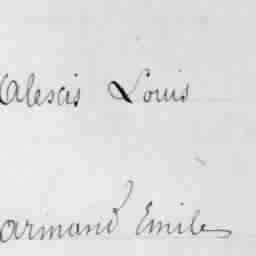 Alexis Louis
Armand Emile